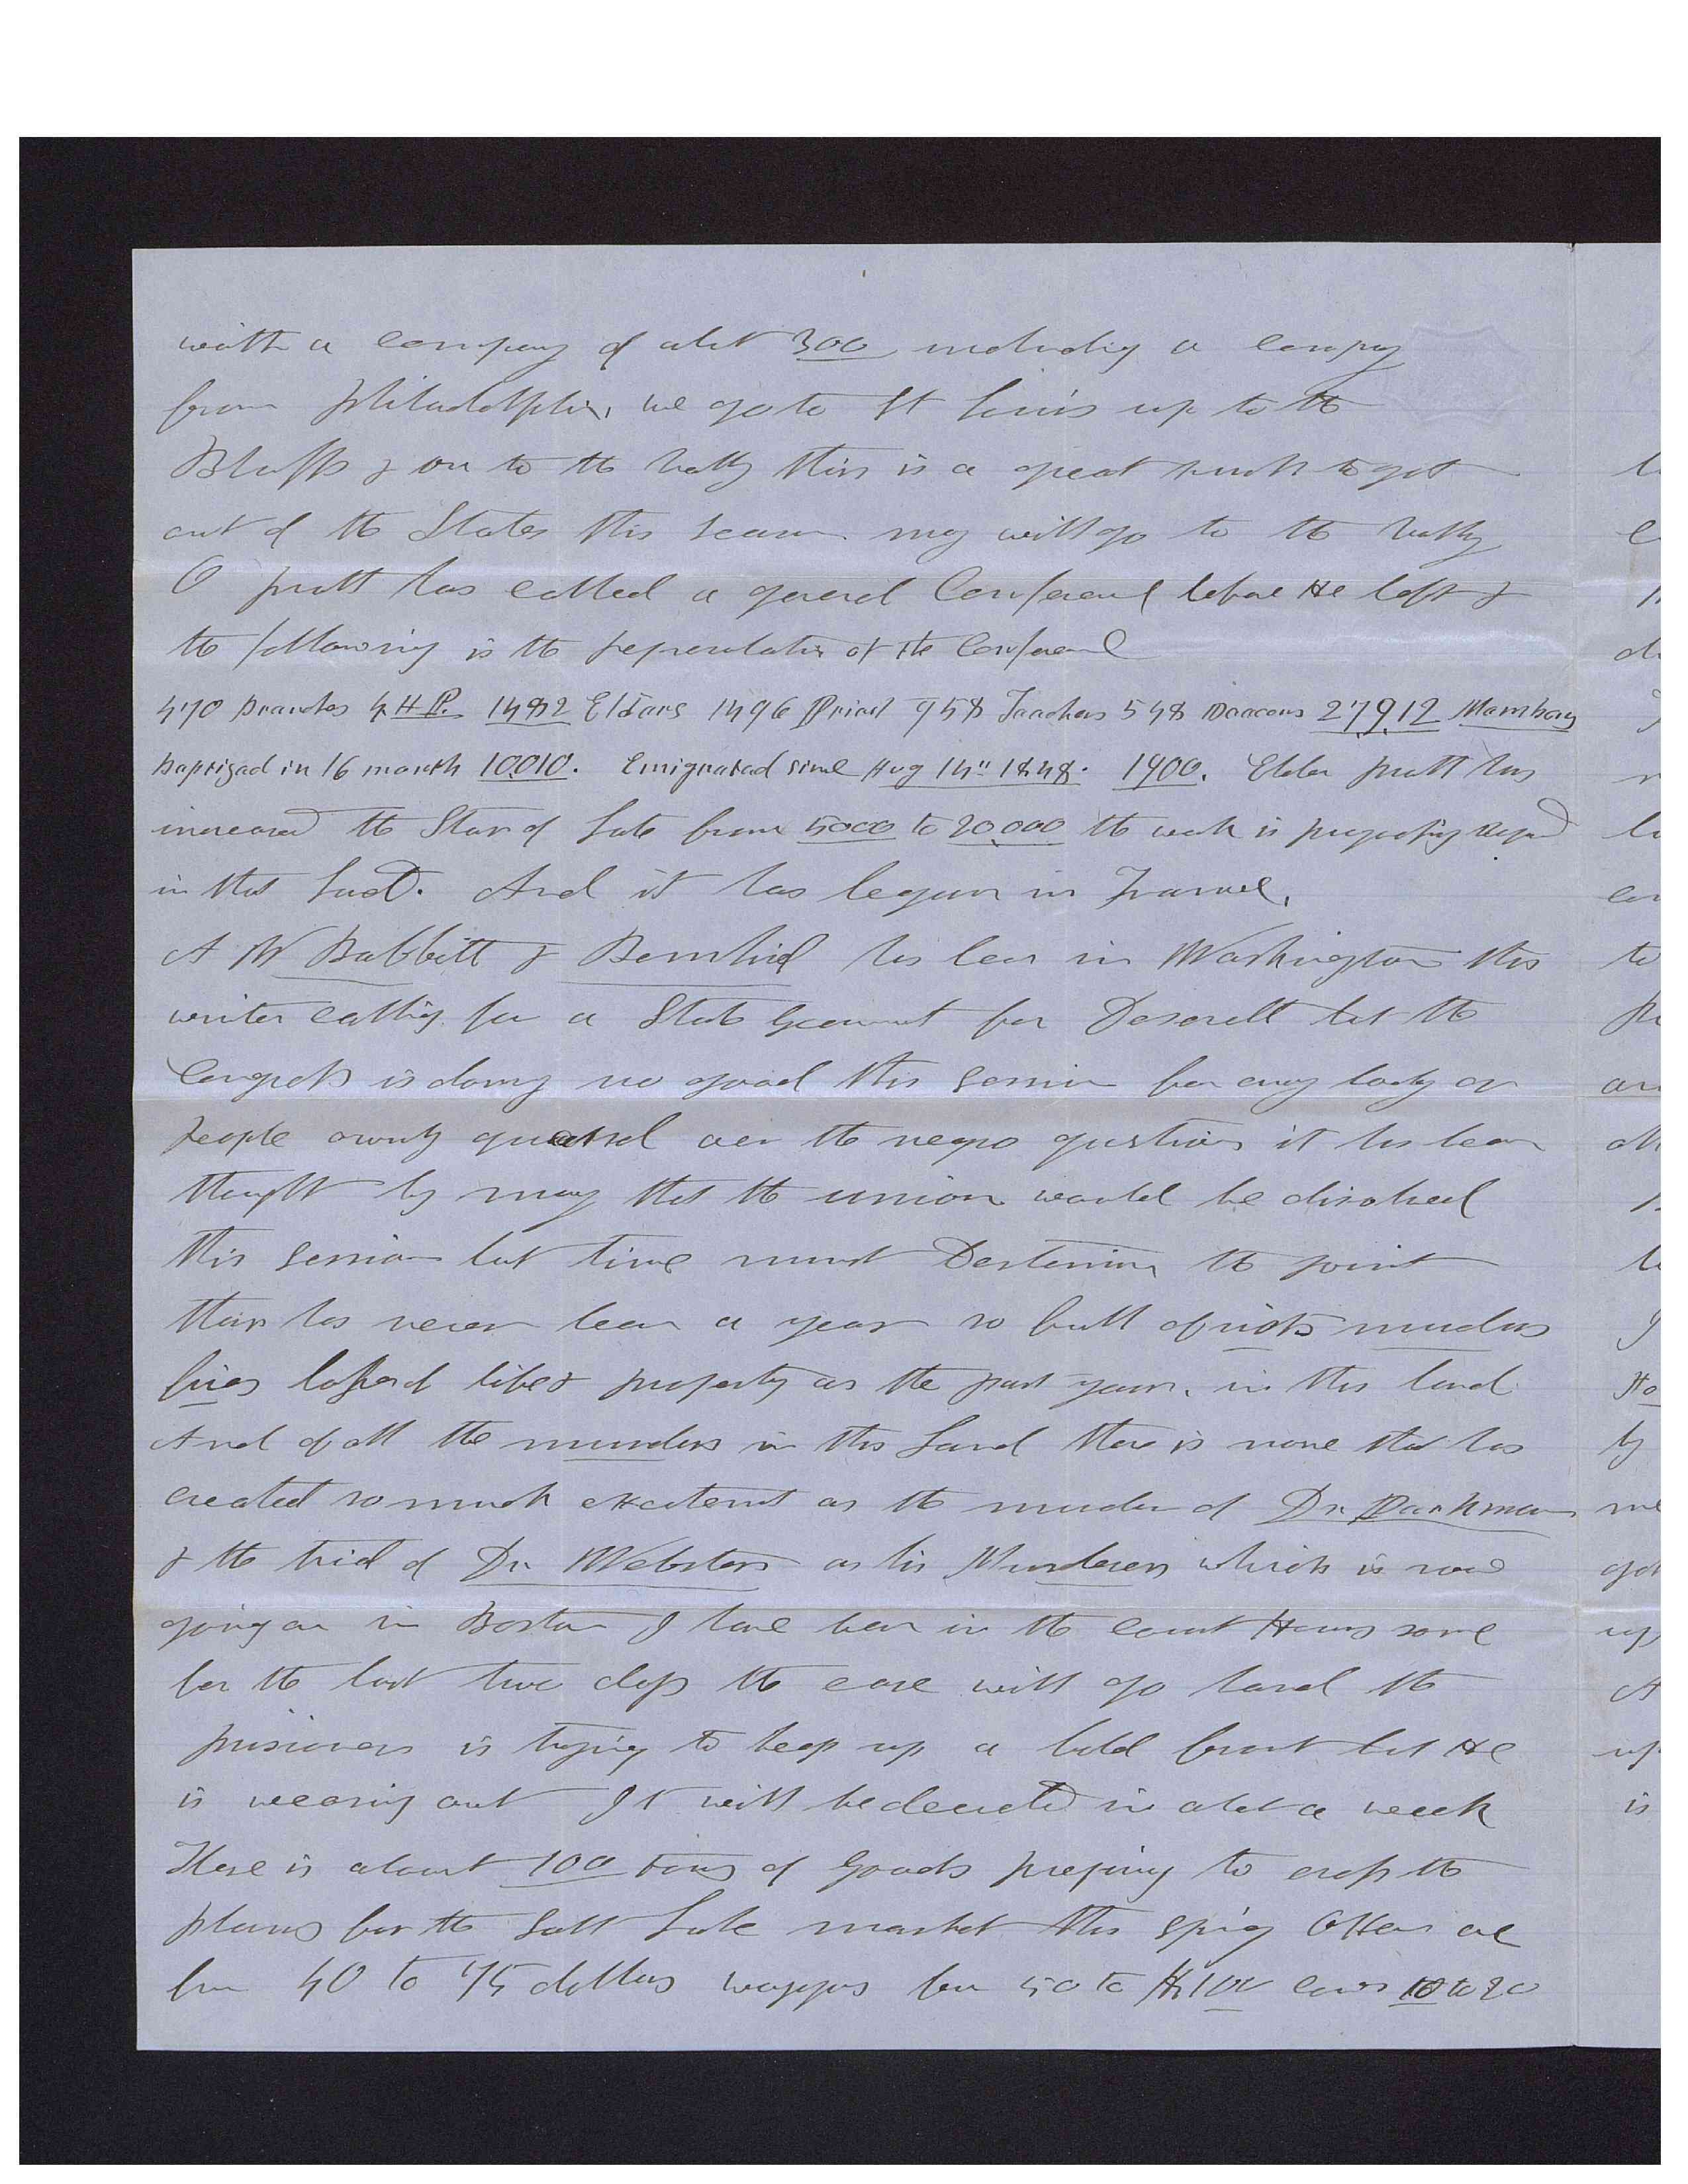 with a company of abot 300 including a company
from Philadelphia, we go to St Louis up to the
Bluffs & on to the vally this is a great rush to get
out of the States this season. many will go to the vally
O pratt has called a general Conferance before He left &
the following is the representation of the Conferance
470 Branches 4 H P. 1482 Eldars 1496 Priest 958 Taachers 548 Daacons 27,912 Mambars
baptizad in 16 month 10010. Emigratad since Aug 14" 1848. 1900. Elder pratt has
increased the Star of late from 5000 to 20,000 the work is progressing Rapid
in that land. And it has begun in France.
A W Babbitt & Bernhisel has been in Washington this
winter calling for a State Goverment for Deserett but the
Congress is doing no good this Session for any body or
people ownly quarrel over the negro question it has been
thought by many that the union would be disolved
this Session but time must Determin the point
thair has never been a year so full of riots murders
fires loss of life & property as the past year, in this land
And of all the murders in this Land thare is none that has
created so much excitement as the murder of Dr Parkman
& the trial of Dr Webster as his Murderer which is now
going on in Boston I have been in the court House some
for the last two days the case will go hard the
prisioner is trying to keep up a bold front but He
is wearing out It will be decided in abot a week
There is about 100 tons of goods prepairing to cross the
plains for the Salt Lake market this spring Oxen are
from 40 to 75 dollars waggons from 50 to $100 cows 10 to 20